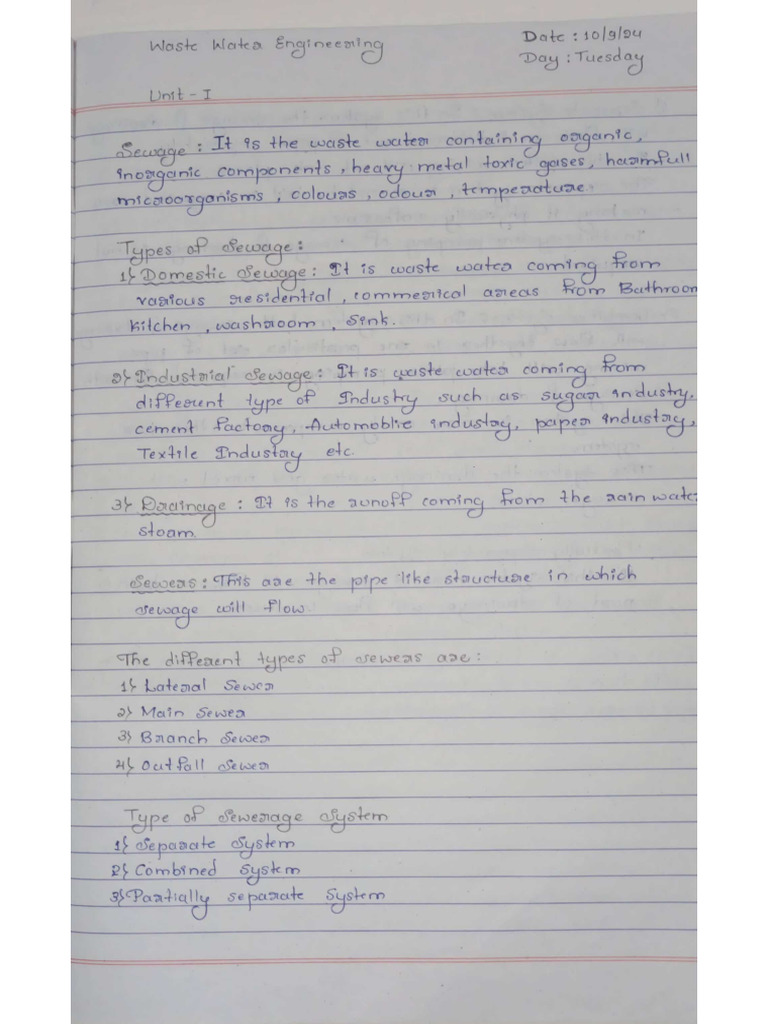 Waste Water Engineering
Date : 10/9/24
Day : Tuesday
Unit - I
Sewage : It is the waste water containing organic,
inorganic components, heavy metal toxic gases, harmfull
microorganisms, colours, odour, temperature.
Types of Sewage :
1} Domestic Sewage : It is waste water coming from
various residential, commerical areas from Bathroom
kitchen, washroom, sink.
2} Industrial Sewage : It is waste water coming from
different type of Industry such as sugar industry,
cement factory, Automoblie industry, paper industry,
Textile Industry etc.
3} Drainage : It is the runoff coming from the rain water
stoam.
Sewers : This are the pipe like structure in which
sewage will flow
The different types of sewers are :
1} Lateral Sewer
2} Main Sewer
3} Branch Sewer
4} Outfall Sewer
Type of Sewerage System
1} Separate System
2} Combined System
3} Partially separate System